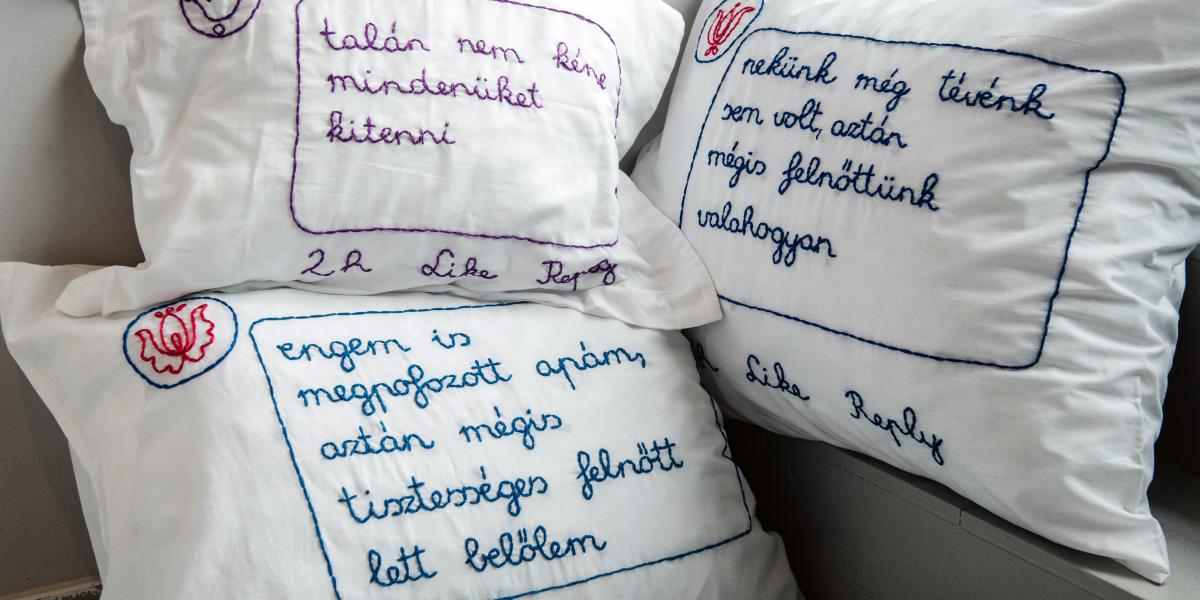 talán nem kéne
mindenüket
kitenni
2 h Like Reply
nekünk még tévénk
sem volt, aztán
mégis felnőttünk
valahogyan
Like Reply
engem is
megpofozott apám,
aztán mégis
tisztességes felnőtt
lett belőlem